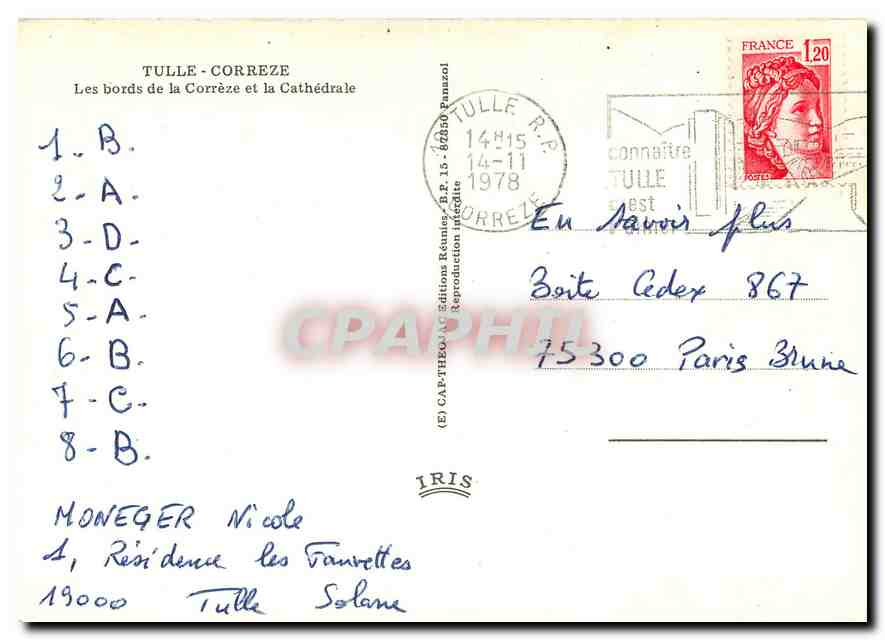 TULLE - CORREZE
Les bords de la Corrèze et la Cathédrale
1 - B.
2 - A.
3 - D.
4 - C.
5 - A.
6 - B.
7 - C.
8 - B.
MONEGER Nicole
1, Résidence les Fauvettes
19000 Tulle Solane
(E) CAP-THEOJAC Editions Réunies - B.P. 15 - 87350 Panazol
Reproduction interdite
IRIS
19 TULLE R.P.
14H15
14-11
1978
CORREZE
connaître
TULLE
c'est
FRANCE 1,20
POSTES
En savoir plus
Boite Cedex 867
75300 Paris Brune
CPAPHIL